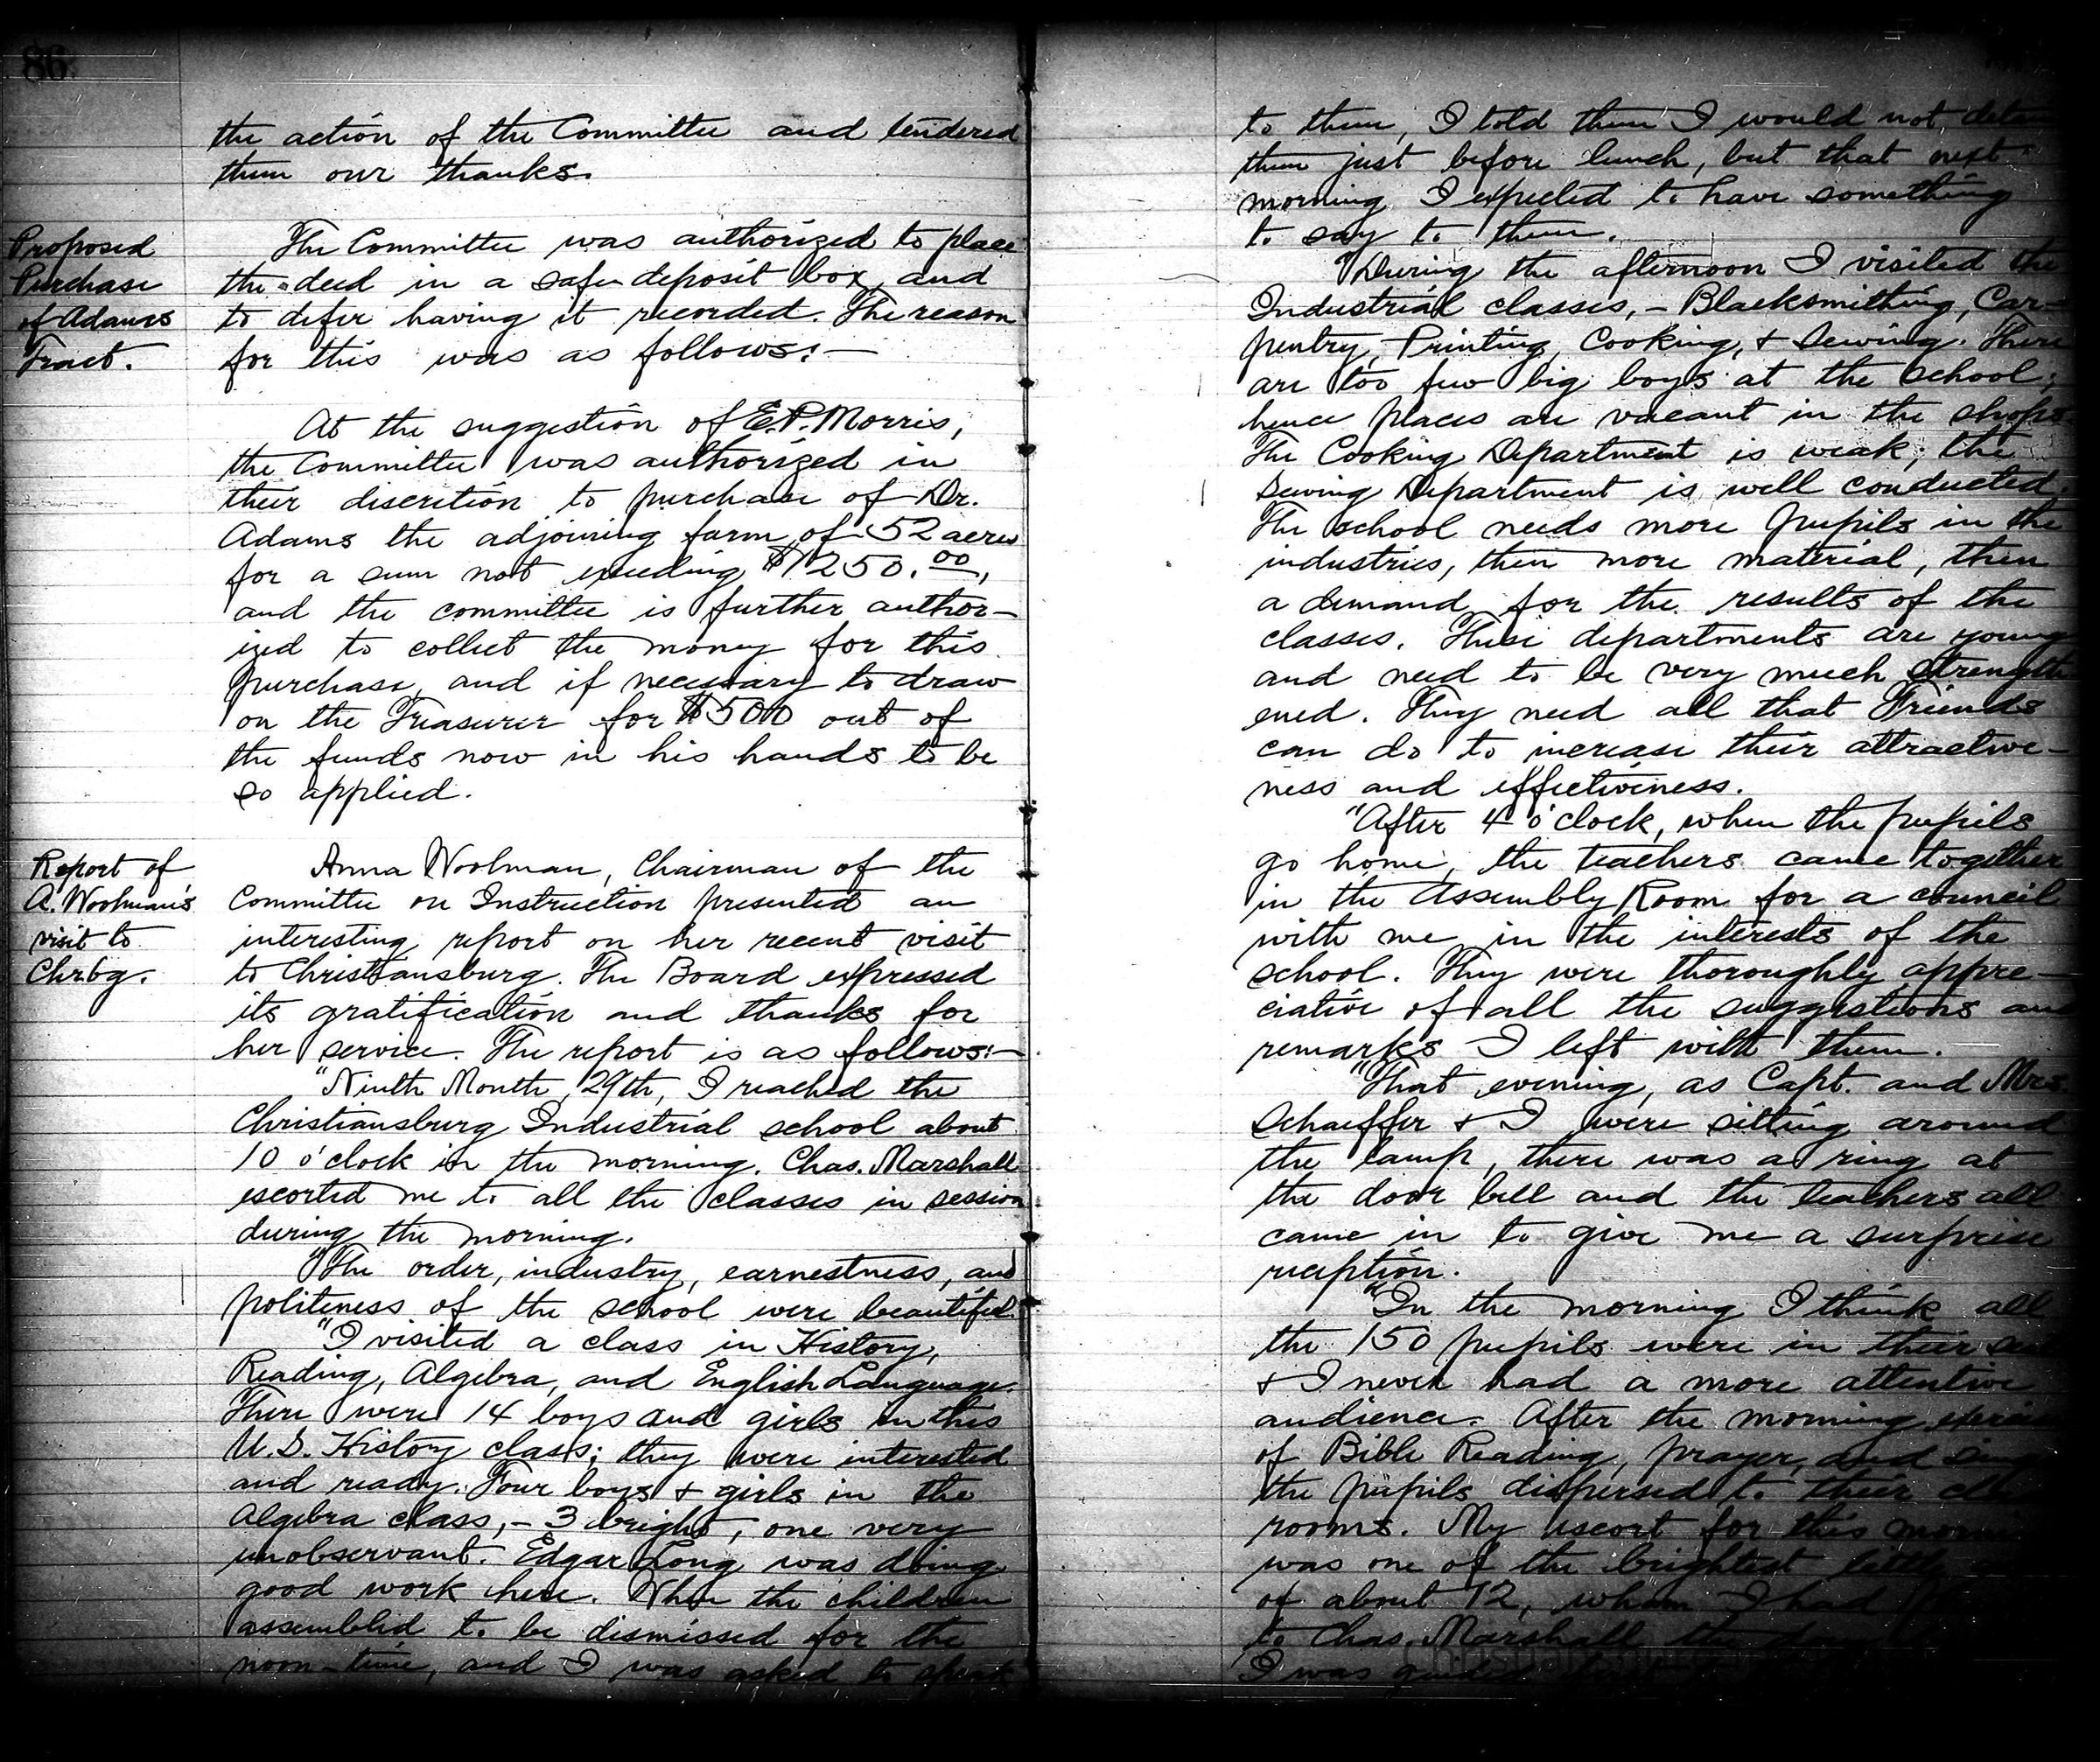 86
the action of the Committee and tendered
them our thanks.
Proposed
Purchase
of Adams
Tract.
The Committee was authorized to place
the deed in a safe deposit box, and
to defer having it recorded. The reason
for this was as follows:—
At the suggestion of E.P. Morris,
the Committee was authorized in
their discretion to purchase of Dr.
Adams the adjoining farm of 52 acres
for a sum not exceeding $1250.00,
and the committee is further author-
ized to collect the money for this
purchase, and if necessary to draw
on the Treasurer for $500 out of
the funds now in his hands to be
so applied.
Report of
A. Woolman's
visit to
Chrbg.
Anna Woolman, Chairman of the
Committee on Instruction presented an
interesting report on her recent visit
to Christiansburg. The Board expressed
its gratification and thanks for
her service. The report is as follows:—
"Ninth Month, 29th, I reached the
Christiansburg Industrial school about
10 o'clock in the morning. Chas. Marshall
escorted me to all the classes in session
during the morning.
"The order, industry, earnestness, and
politeness of the school were beautiful.
"I visited a class in History,
Reading, Algebra, and English Language.
There were 14 boys and girls in this
U.S. History class; they were interested
and ready. Four boys & girls in the
Algebra class,- 3 bright, one very
unobservant. Edgar Long was doing
good work here. When the children
assembled to be dismissed for the
noon-time, and I was asked to speak
to them, I told them I would not detain
them just before lunch, but that next
morning I expected to have something
to say to them.
"During the afternoon I visited the
Industrial classes,- Blacksmithing, Car-
pentry, Printing, Cooking, & Sewing. There
are too few big boys at the school;
hence places are vacant in the shops.
The Cooking Department is weak; the
Sewing Department is well conducted.
The school needs more pupils in the
industries, then more material, then
a demand for the results of the
classes. These departments are young
and need to be very much strength-
ened. They need all that Friends
can do to increase their attractive-
ness and effectiveness.
"After 4 o'clock, when the pupils
go home, the teachers came together
in the Assembly Room for a council
with me in the interests of the
school. They were thoroughly appre-
ciative of all the suggestions and
remarks I left with them.
"That evening, as Capt. and Mrs.
Schaeffer & I were sitting around
the lamp, there was a ring at
the door bell and the teachers all
came in to give me a surprise
reception.
"In the morning I think all
the 150 pupils were in their
& I never had a more attentive
audience. After the morning
of Bible Reading, prayer, and
the pupils dispersed to their
rooms. My escort for this
was one of the brightest
of about 12, whom I had
to Chas. Marshall the
I was guided